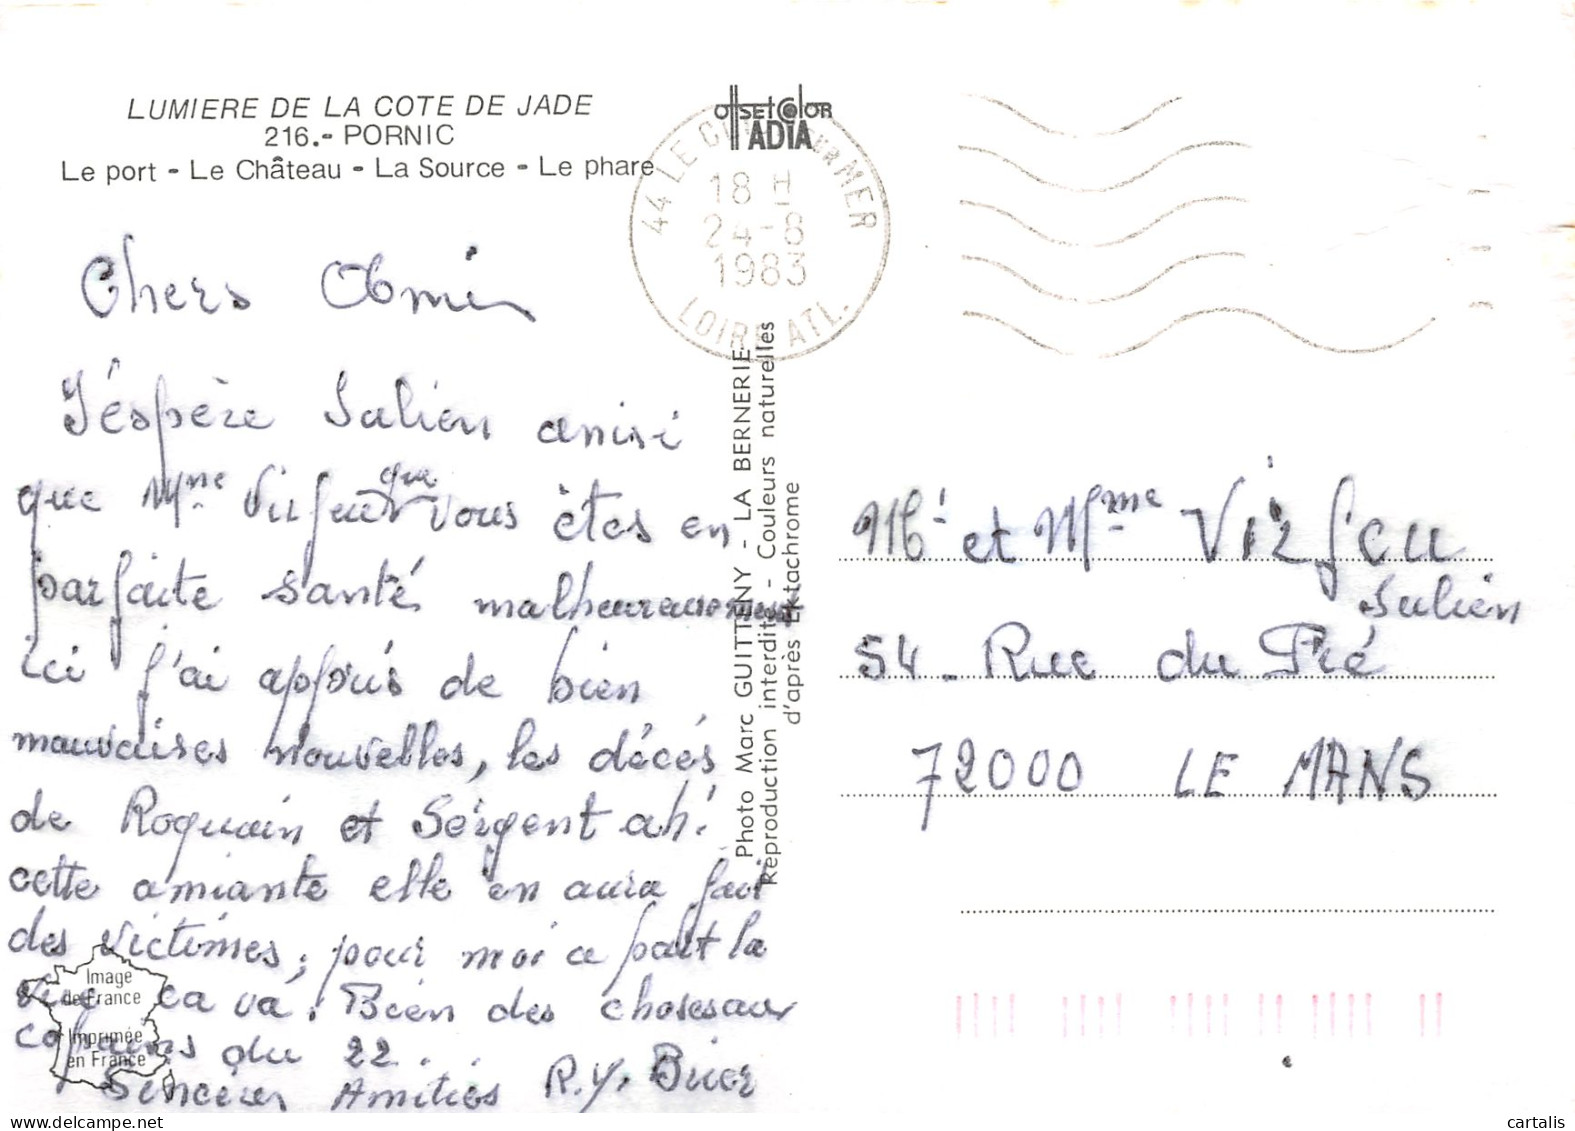 LUMIERE DE LA COTE DE JADE
216.- PORNIC
Le port - Le Château - La Source - Le phare
offsetcolor
ADIA
44 LE CL SUR MER
18 H
24-8
1983
LOIRE ATL.
Chers Amis
J'éspère Julien ainsi
que Mme Virfeu que vous êtes en
parfaite santé malheureusement
ici j'ai appris de bien
mauvaises nouvelles, les décés
de Roquain et Sergent ah!
cette amiante elle en aura fait
des victimes, pour moi a part la
vue ca va. Bien des choses aux
copains du 22.
Sincères Amitiés R.Y. Brier
Image
de France
Imprimée
en France
Photo Marc GUITTENY - LA BERNERIE
Reproduction interdite - Couleurs naturelles
d'après Ektachrome
Mr et Mme Virfeu
Julien
54 - Rue du Pré
72000 LE MANS
cartalis